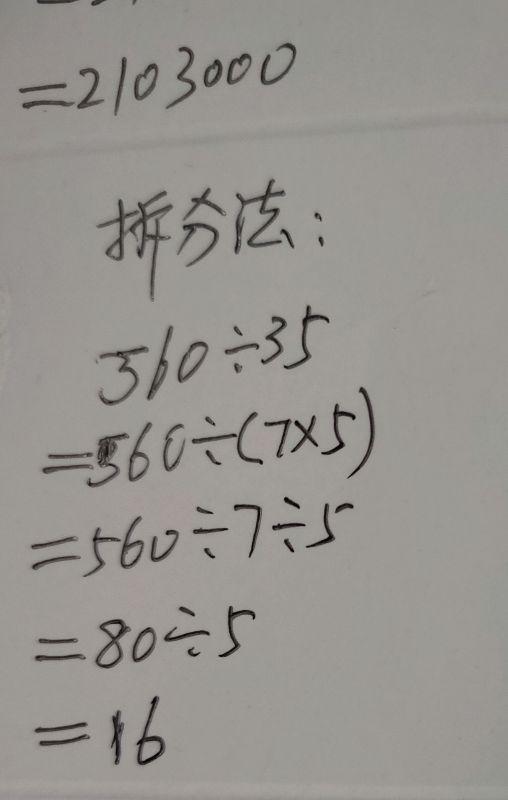 =2103000
拆分法:
560÷35
=560÷(7×5)
=560÷7÷5
=80÷5
=16